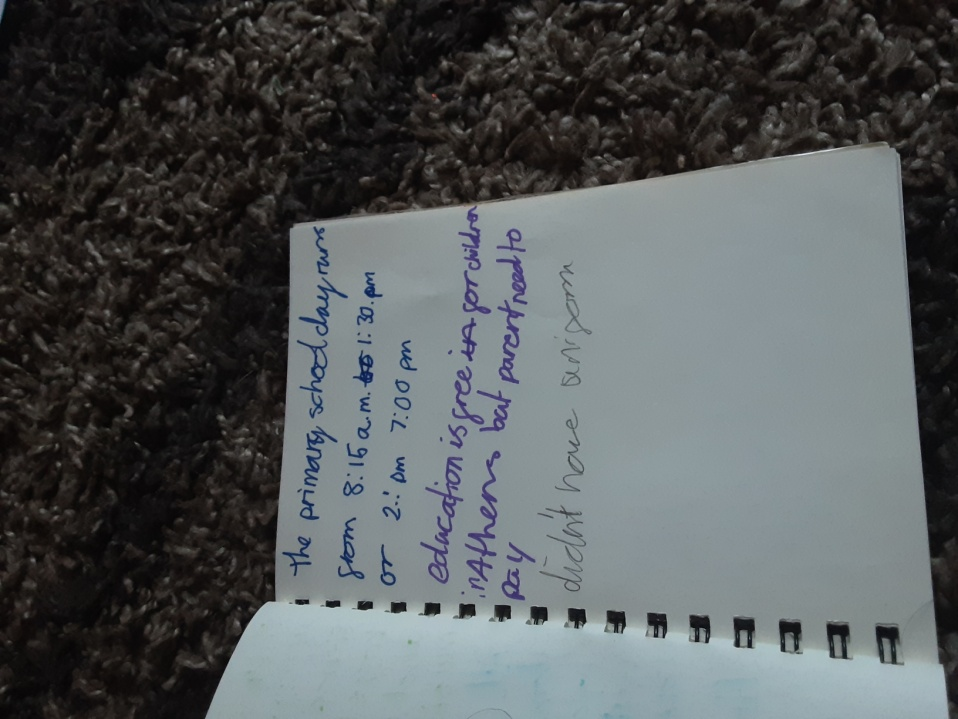 the primary school day runs
from 8:15 a.m. 1:30.pm
or 2:: pm 7:00 pm
education is free for children
in Athens but parent need to
pay
didn't have uniform